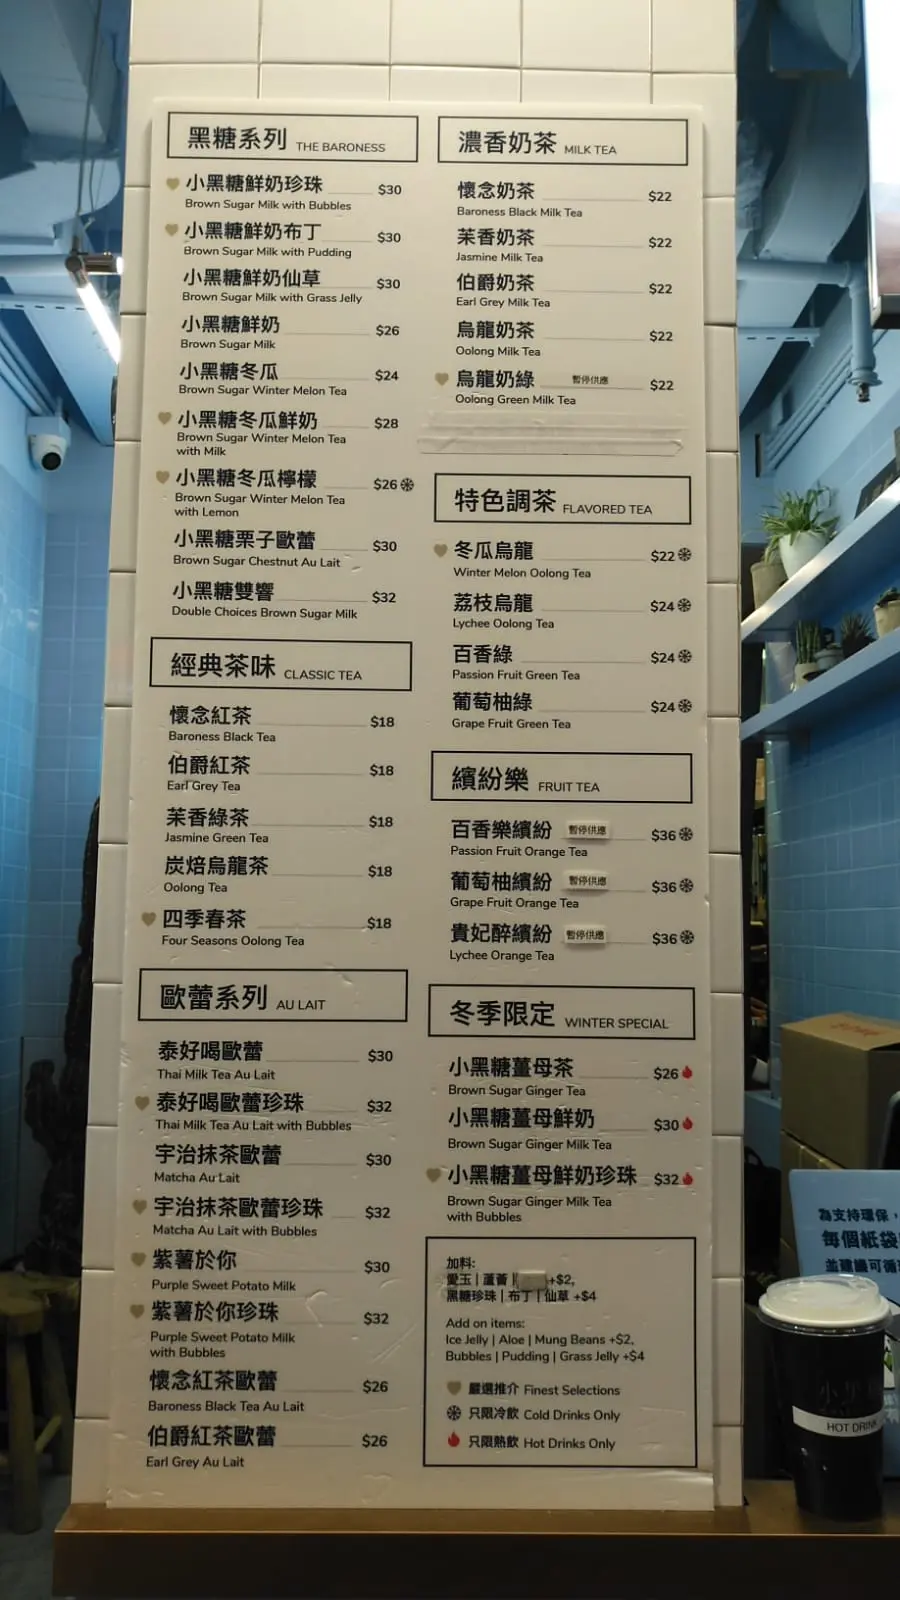 黑糖系列 THE BARONESS
小黑糖鮮奶珍珠 $30
Brown Sugar Milk with Bubbles
小黑糖鮮奶布丁 $30
Brown Sugar Milk with Pudding
小黑糖鮮奶仙草 $30
Brown Sugar Milk with Grass Jelly
小黑糖鮮奶 $26
Brown Sugar Milk
小黑糖冬瓜 $24
Brown Sugar Winter Melon Tea
小黑糖冬瓜鮮奶 $28
Brown Sugar Winter Melon Tea
with Milk
小黑糖冬瓜檸檬 $26
Brown Sugar Winter Melon Tea
with Lemon
小黑糖栗子歐蕾 $30
Brown Sugar Chestnut Au Lait
小黑糖雙響 $32
Double Choices Brown Sugar Milk
經典茶味 CLASSIC TEA
懷念紅茶 $18
Baroness Black Tea
伯爵紅茶 $18
Earl Grey Tea
茉香綠茶 $18
Jasmine Green Tea
炭焙烏龍茶 $18
Oolong Tea
四季春茶 $18
Four Seasons Oolong Tea
歐蕾系列 AU LAIT
泰好喝歐蕾 $30
Thai Milk Tea Au Lait
泰好喝歐蕾珍珠 $32
Thai Milk Tea Au Lait with Bubbles
宇治抹茶歐蕾 $30
Matcha Au Lait
宇治抹茶歐蕾珍珠 $32
Matcha Au Lait with Bubbles
紫薯於你 $30
Purple Sweet Potato Milk
紫薯於你珍珠 $32
Purple Sweet Potato Milk
with Bubbles
懷念紅茶歐蕾 $26
Baroness Black Tea Au Lait
伯爵紅茶歐蕾 $26
Earl Grey Au Lait
濃香奶茶 MILK TEA
懷念奶茶 $22
Baroness Black Milk Tea
茉香奶茶 $22
Jasmine Milk Tea
伯爵奶茶 $22
Earl Grey Milk Tea
烏龍奶茶 $22
Oolong Milk Tea
烏龍奶綠 暫停供應 $22
Oolong Green Milk Tea
特色調茶 FLAVORED TEA
冬瓜烏龍 $22
Winter Melon Oolong Tea
荔枝烏龍 $24
Lychee Oolong Tea
百香綠 $24
Passion Fruit Green Tea
葡萄柚綠 $24
Grape Fruit Green Tea
繽紛樂 FRUIT TEA
百香樂繽紛 暫停供應 $36
Passion Fruit Orange Tea
葡萄柚繽紛 暫停供應 $36
Grape Fruit Orange Tea
貴妃醉繽紛 暫停供應 $36
Lychee Orange Tea
冬季限定 WINTER SPECIAL
小黑糖薑母茶 $26
Brown Sugar Ginger Tea
小黑糖薑母鮮奶 $30
Brown Sugar Ginger Milk Tea
小黑糖薑母鮮奶珍珠 $32
Brown Sugar Ginger Milk Tea
with Bubbles
加料:
愛玉 | 蘆薈 | +$2,
黑糖珍珠 | 布丁 | 仙草 +$4
Add on items:
Ice Jelly | Aloe | Mung Beans +$2,
Bubbles | Pudding | Grass Jelly +$4
嚴選推介 Finest Selections
只限冷飲 Cold Drinks Only
只限熱飲 Hot Drinks Only
為支持環保，
每個紙袋
並建議可循
HOT DRINK